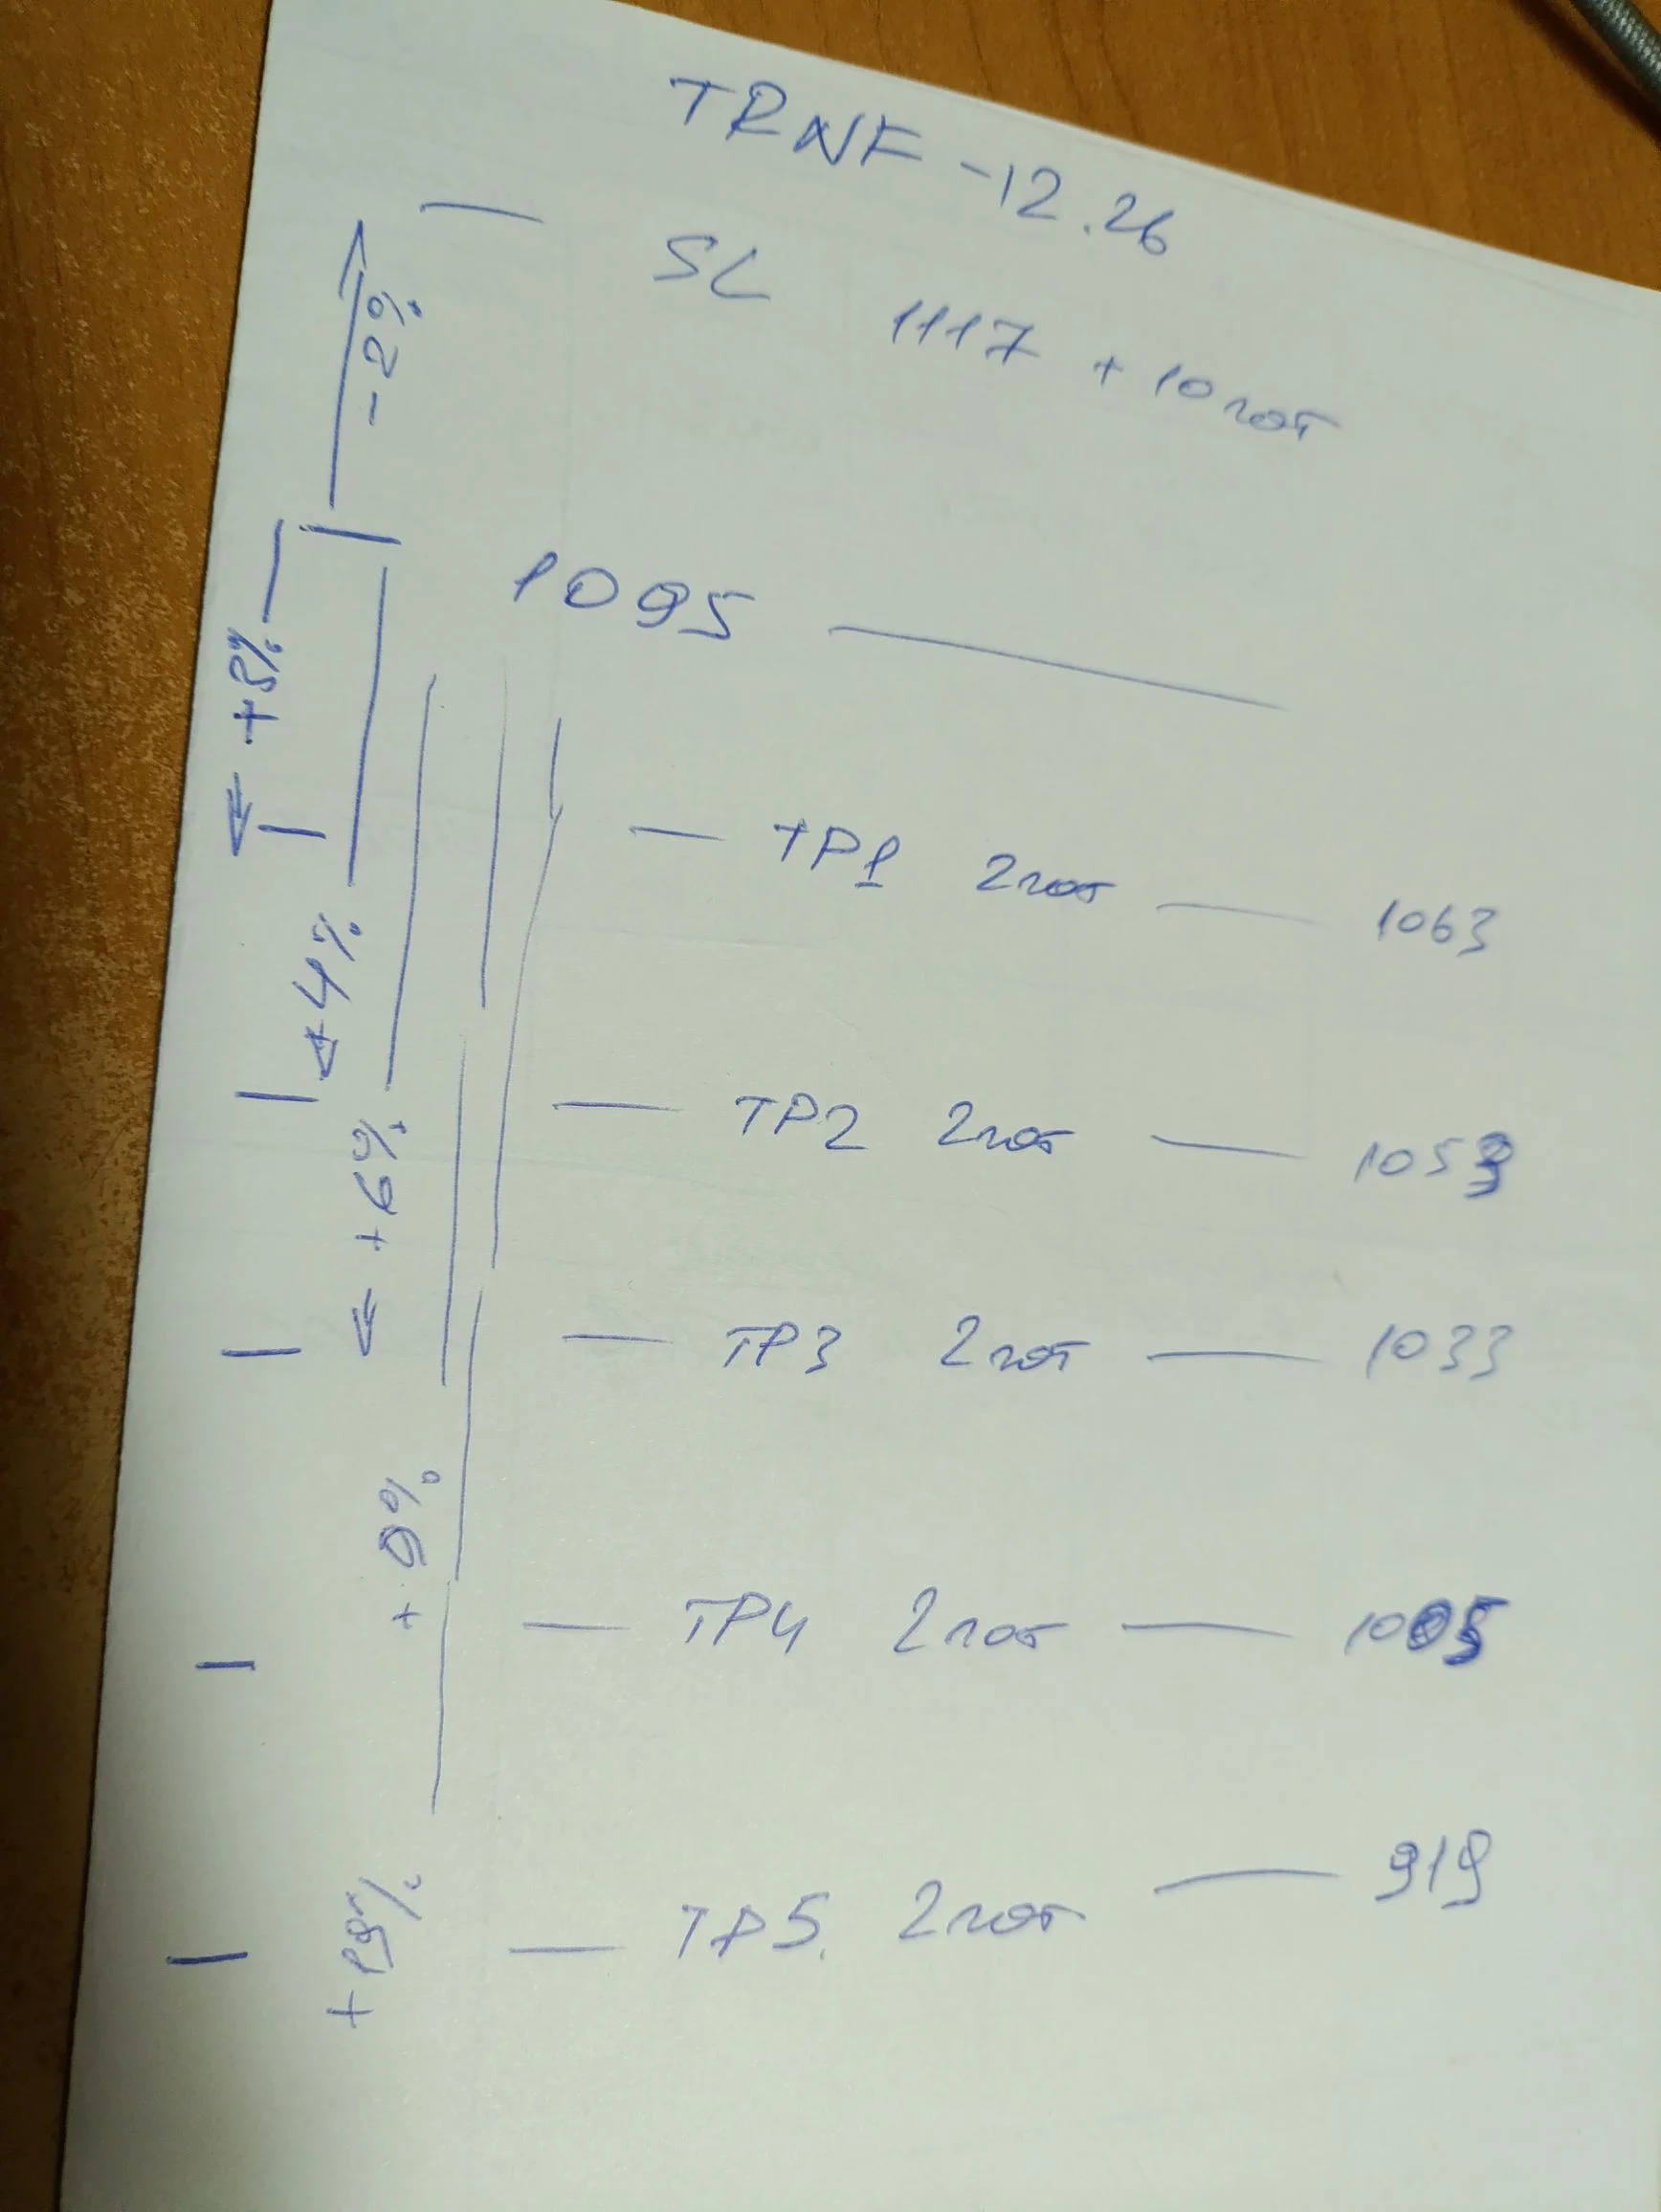 TRNF - 12.26
SL 1117 + 10 лот
- 2%
1095
+3%
TP1 2 лот — 1063
+4%
TP2 2 лот — 1053
+6%
TP3 2 лот — 1033
+9%
TP4 2 лот — 1005
+19%
TP5. 2 лот — 919